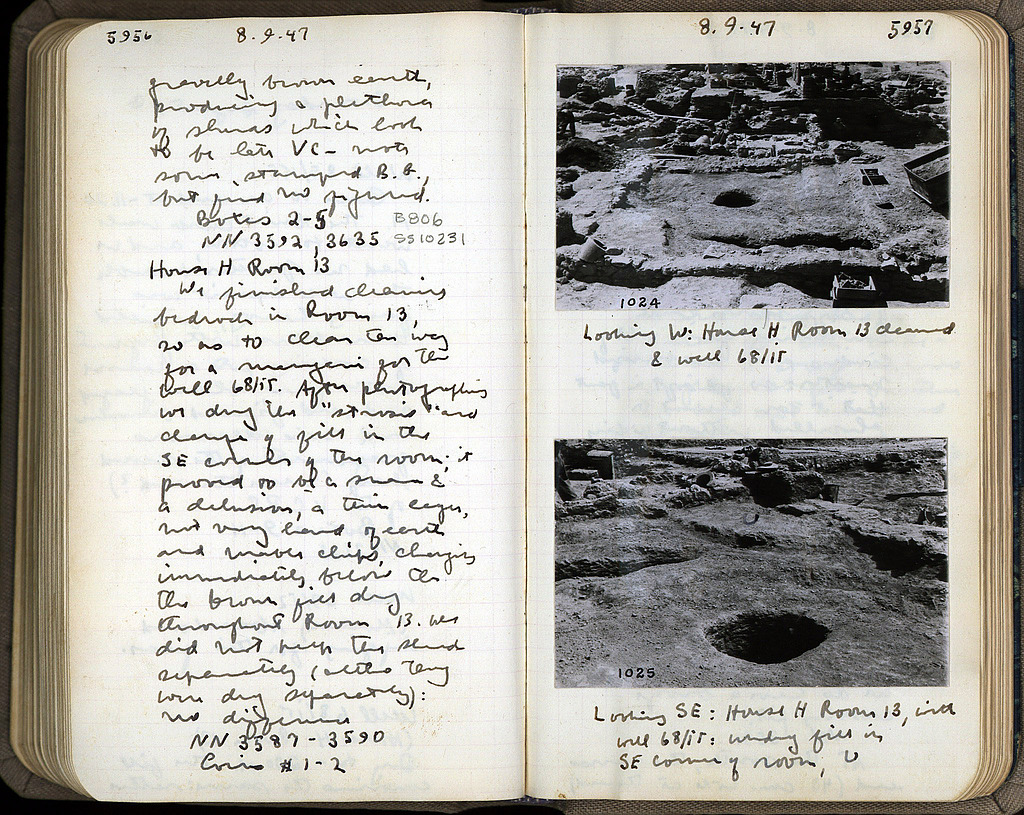 5956
8.9.47
gravelly brown earth,
producing a plethora
of sherds which look
to be late VC - note
some stamped B.G.,
but find no figured.
Boxes 2-5
B806
NN 3592, 3635
SS10231
House H Room 13
We finished cleaning
bedrock in Room 13,
so as to clear the way
for a for the
well 68/ΙΣΤ. After photographing
we dug the "strosis" and
change of fill in the
SE corner of the room; it
proved to be a snare &
a delusion, a thin layer,
not very hard of earth
and marble chips, changing
immediately below to
the brown fill dug
throughout Room 13. We
did not keep the sherds
separately (altho they
were dug separately):
no difference
NN 3587-3590
Coins #1-2
8.9.47
5957
1024
Looking W: House H Room 13 cleaned
& well 68/ΙΣΤ
1025
Looking SE: House H Room 13, with
well 68/ΙΣΤ: fill in
SE corner of room,